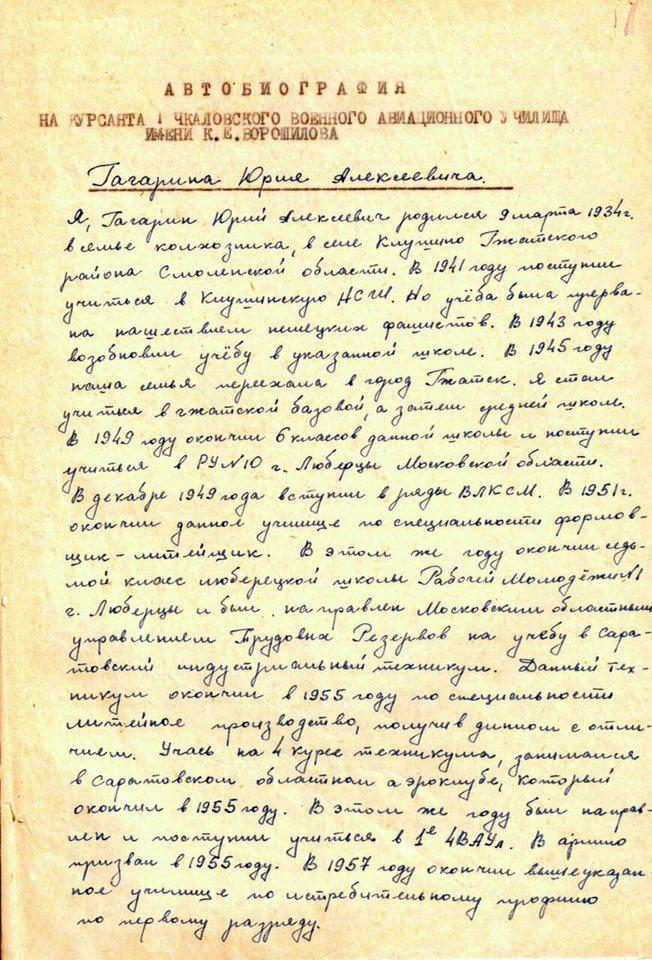 АВТОБИОГРАФИЯ
НА КУРСАНТА 1 ЧКАЛОВСКОГО ВОЕННОГО АВИАЦИОННОГО УЧИЛИЩА
ИМЕНИ К.Е.ВОРОШИЛОВА
Гагарина Юрия Алексеевича.
Я, Гагарин Юрий Алексеевич родился 9 марта 1934 г.
в семье колхозника, в селе Клушино Гжатского
района Смоленской области. В 1941 году поступил
учиться в Клушинскую НСШ. Но учёба была прерва-
на нашествием немецких фашистов. В 1943 году
возобновил учёбу в указанной школе. В 1945 году
наша семья переехала в город Гжатск. Я стал
учиться в гжатской базовой, а затем средней школе.
В 1949 году окончил 6 классов данной школы и поступил
учиться в РУ№10 г. Люберцы Московской области.
В декабре 1949 года вступил в ряды ВЛКСМ. В 1951 г.
окончил данное училище по специальности формов-
щик-литейщик. В этом же году окончил седь-
мой класс люберецкой школы Рабочей Молодёжи №1
г. Люберцы и был направлен Московским областным
управлением Трудовых Резервов на учёбу в Сара-
товский индустриальный техникум. Данный тех-
никум окончил в 1955 году по специальности
литейное производство, получив диплом с отли-
чием. Учась на 4 курсе техникума, занимался
в Саратовском областном аэроклубе, который
окончил в 1955 году. В этом же году был направ-
лен и поступил учиться в 1е ЧВАУл. В армию
призван в 1955 году. В 1957 году окончил вышеуказан-
ное училище по истребительному профилю
по первому разряду.